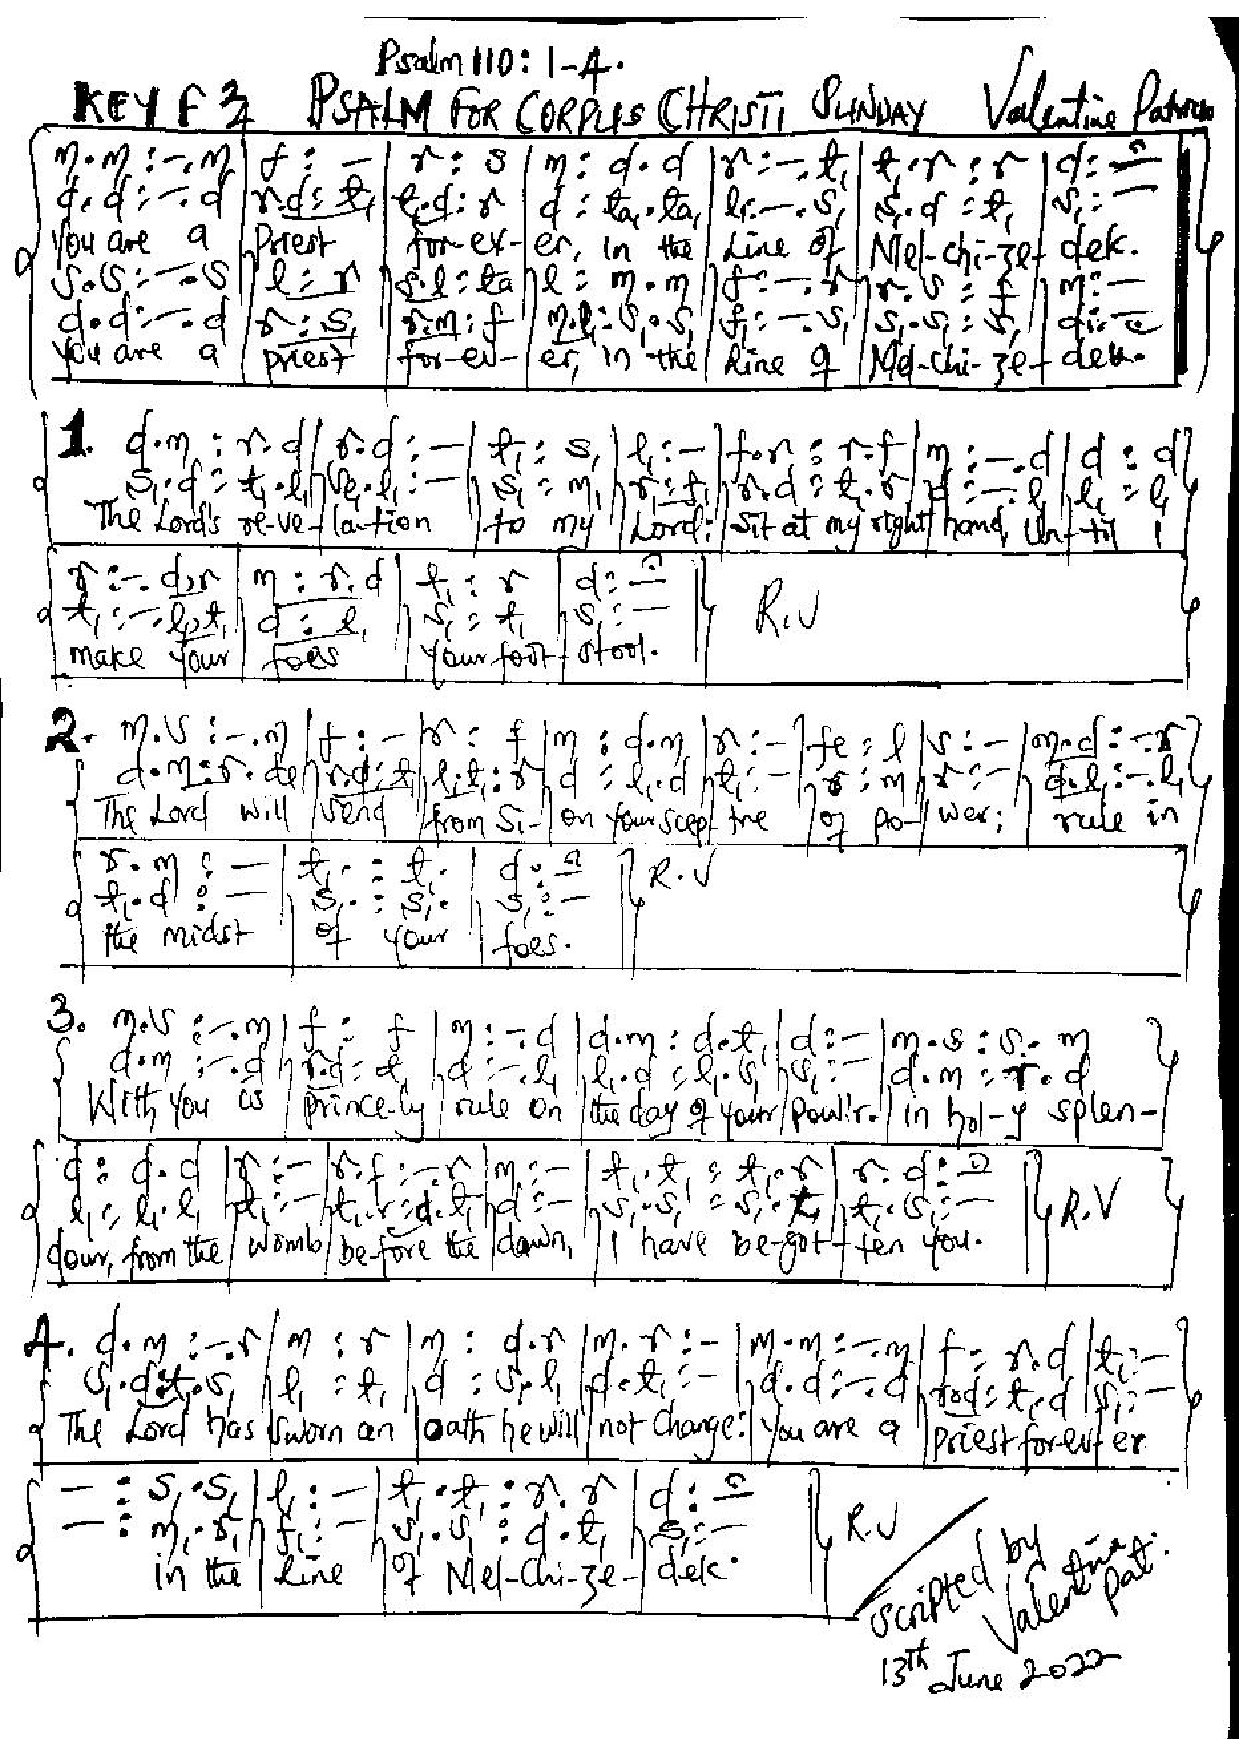 Psalm 110: 1-4.
KEY F 3/4 PSALM FOR CORPUS CHRISTI SUNDAY Valentine
m.m : -.m | f : - | r : s | m : d.d | r : -.t, | t,.r : r | d : -
d.d : -.d | r.d : t, | t,.d : r | d : ta,.ta, | l, : -.s, | s,.d : t, | s, : -
You are a | Priest | for-ev- | er, in the | Line of | Mel-chi-ze- | dek.
s.s : -.s | l : r | s.l : ta | l : m.m | f : -.r | r.s : f | m : -
d.d : -.d | r : s, | r.m : f | m.l, : s,.s, | f, : -.s, | s,.s, : s, | d : -
You are a | priest | for-ev- | er, in the | line of | Mel-chi-ze- | dek.
1. d.m : r.d | r.d : - | t, : s, | l, : - | f.r : r.f | m : -.d | d : d
s,.d : t,.l, | se,.l, : - | s, : m, | r, : f, | r.d : t,.r | d : -.l, | l, : l,
The Lord's re-ve- | la-tion | to my | Lord: | Sit at my right | hand, Un- | til I
r : -.d,r | m : r.d | t, : r | d : -
t, : -.l,,t, | d : l, | s, : t, | s, : - R.V
make your | foes | your foot- | stool.
2. m.s : -.m | f : - | r : f | m : d.m | r : - | fe : l | s : - | m.d : -.r
d.m : r.de | r.d : t, | l,.t, : r | d : l,.d | t, : - | r : m | r : - | d.l, : -.l,
The Lord will | send | from Si- | on your scep- | tre | of po- | wer; | rule in
r.m : - | t,. : t,. | d : - R.V
t,.d : - | s,. : s,. | s, : -
the midst | of your | foes.
3. m.s : -.m | f : f | m : -.d | d.m : d.t, | d : - | m.s : s.m
d.m : -.d | r.d : l, | d : -.l, | l,.d : l,.s, | s, : - | d.m : r.d
With you is | prince-ly | rule on | the day of your | pow'r. | in hol-y splen-
d : d.d | r : - | r.f : -.r | m : - | t,.t, : t,.r | r.d : -
l, : l,.l, | t, : - | t,.r : d.t, | d : - | s,.s, : s,.t, | t,.s, : - R.V
dour, from the | womb | be-fore the | dawn, | I have be-got- | ten you.
4. d.m : -.r | m : r | m : d.r | m.r : - | m.m : -.m | f : r.d | t, : -
s,.d : t,.s, | l, : t, | d : s,.l, | d.t, : - | d.d : -.d | r.d : t,.d | s, : -
The Lord has | sworn an | oath he will | not change: | You are a | priest for-ev- | er
- : s,.s, | l, : - | t,.t, : r.r | d : -
- : m,.r, | f, : - | s,.s, : d.t, | s, : - R.V
in the | line | of Mel-chi-ze- | dek.
Scripted by
Valentine
Pat.
13th June 2022